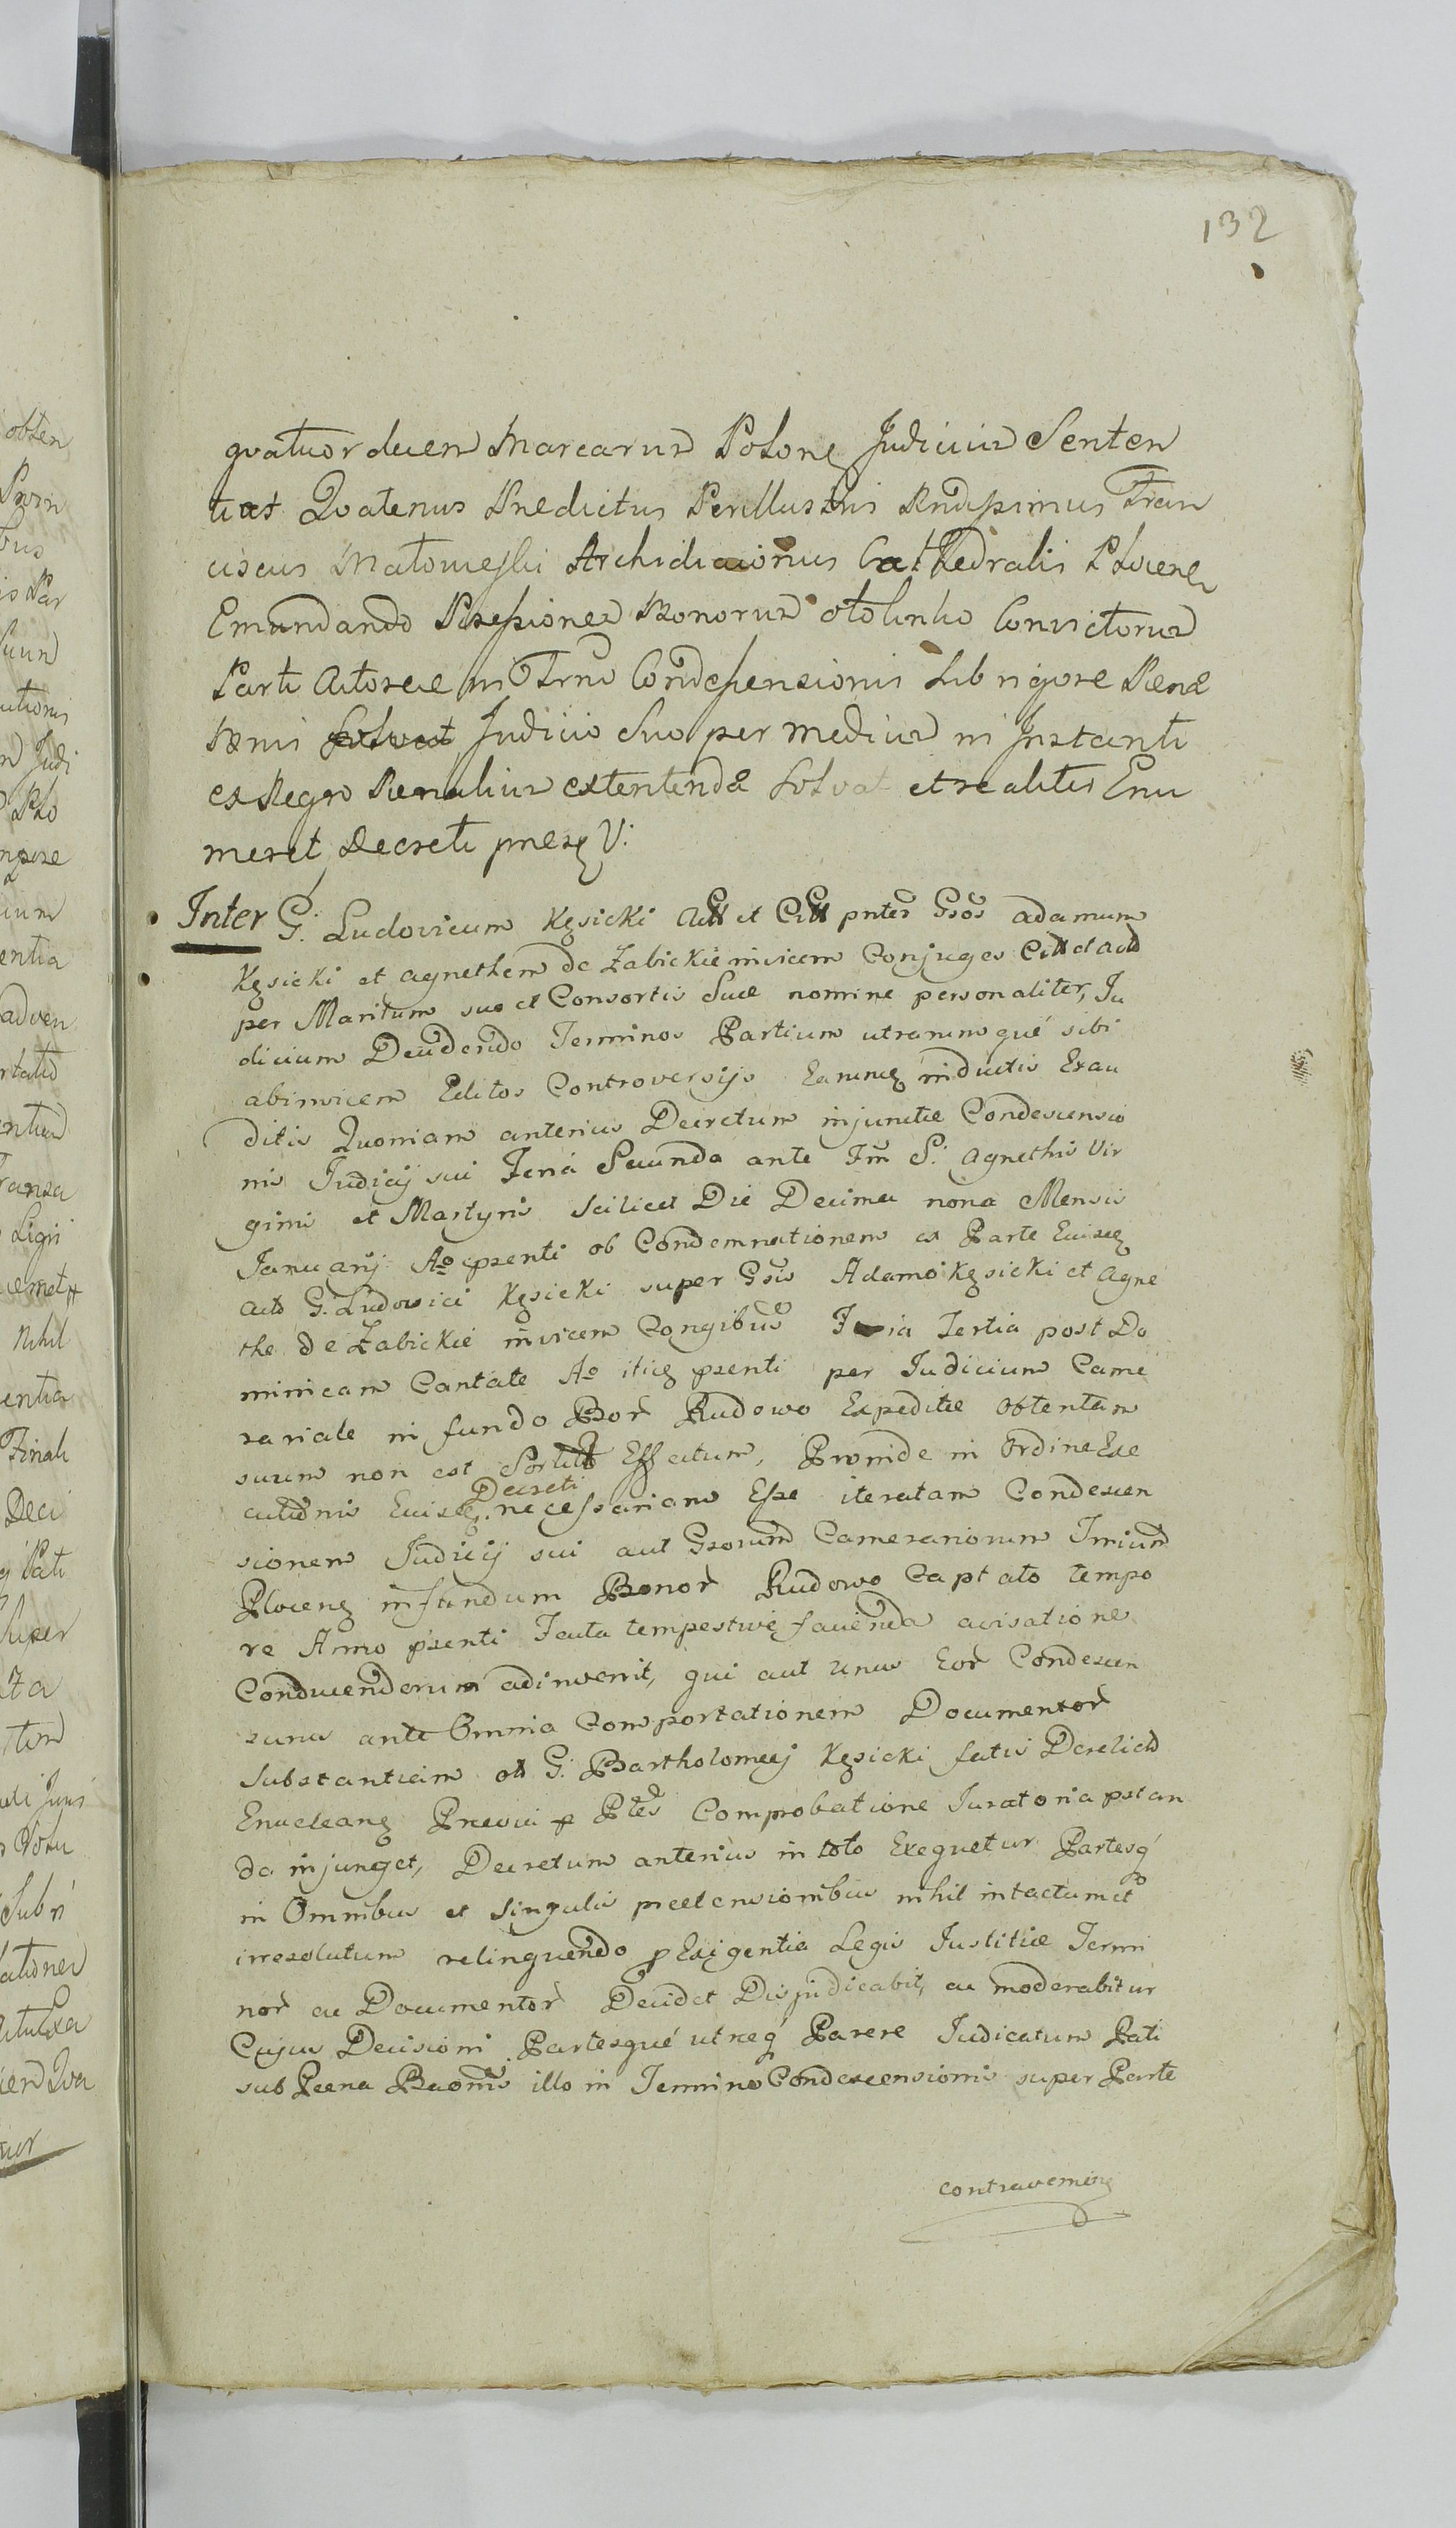 132
quatuordecem Marcarum Polong Judicium Senten
tiat Quatenus Predictus Perillustris Rndissimus Fran
ciscus Małowieski Archidiaconus Cathedralis Plocieng
Emundando Possessionem Bonorum Convictorum
Parti Actoreae in Trno Condescensionis sub rigore Penae
Banis Judicio Suo per medium in Instanti
ex Regro Penalium extentendae Solvat et realiter Enu
meret Decreti presg V:
Inter G. Ludovicum Kęsicki Act et Citt pntes Gsos adamum
Kęsicki et agnethem de Zabickie invicem Conjuges Citt et act
per Maritum suo et Consortis Suae nomine personaliter, Ju
dicium Decidendo Terminos Partium utrarumqué sibi
abinvicem Editos Controversijs Earumq inductis Exau
ditis Quoniam anterius Decretum injunctae Condescensio
nis Judicij sui Feria Secunda ante Fm S. Agnethis Vir
ginis et Martyris scilicet Die Decima nona Mensis
Januarij Ao psenti ob Condemnationem ex Parte Eiusq
acto G. Ludovici Kęsicki super Gsis Adamo Kęsicki et Agne
the de Zabickie invicem Congibus Feria Tertia post Do
minicam Cantate Ao itiq psenti per Judicium Came
rariale in fundo Bor Rudowo Expeditae Obtentam
suum non est Effectum, Proinde in Ordine Exe
cutionis Eiusq. Decreti necessariam Esse iteratam Condescen
sionem Judicij sui aut Gsorum Camerariorum Trrium
Plocieng in fundum Bonor Rudowo Captato tempo
re Anno psenti Facta tempestivę facienda avisatione
Conducendorum adinvenit, qui aut unus Eor Condescen
surus ante Omnia Comportationem Documentor
Substantiam G. Bartholomeij Kęsicki fatis Derelict
Enucleang Previa Ptes Comprobatione Juratoria pstan
da injunget, Decretum anterius in toto Exequetur Partesq
in Omnibus et Singulis praetensionibus nihil intactum et
irresolutum relinquendo p Exigentia Legis Justitiae Termi
nor ac Documentor Decidet Disjudicabit, ac moderabitur
Cujus Decisioni Partesqué utraeq Parere Judicatum Pati
sub Poena Baonis illo in Termino Condescensionis super Parte
contraveming